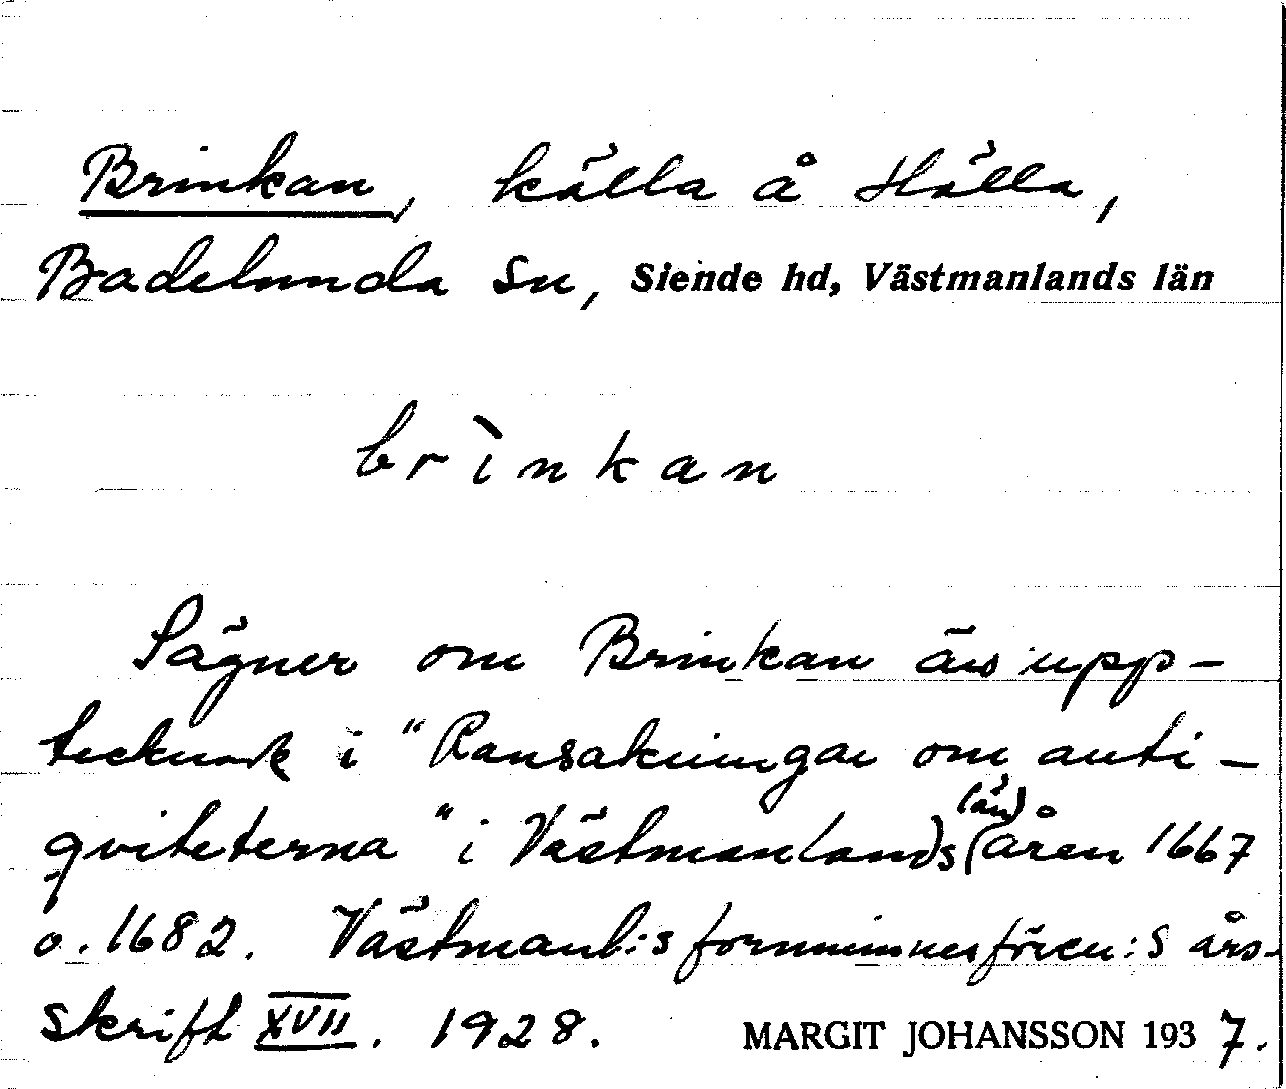 Brinkan, källa å Hälla,
Badelunda sn, Siende hd, Västmanlands län
brìnkan
Sägner om Brinkan äro upp-
tecknade i "Ransakningar om anti-
qviteterna" i Västmanlands (län) åren 1667
o. 1682. Västmanl:s fornminnesfören:s års-
skrift XVII. 1928. MARGIT JOHANSSON 1937.